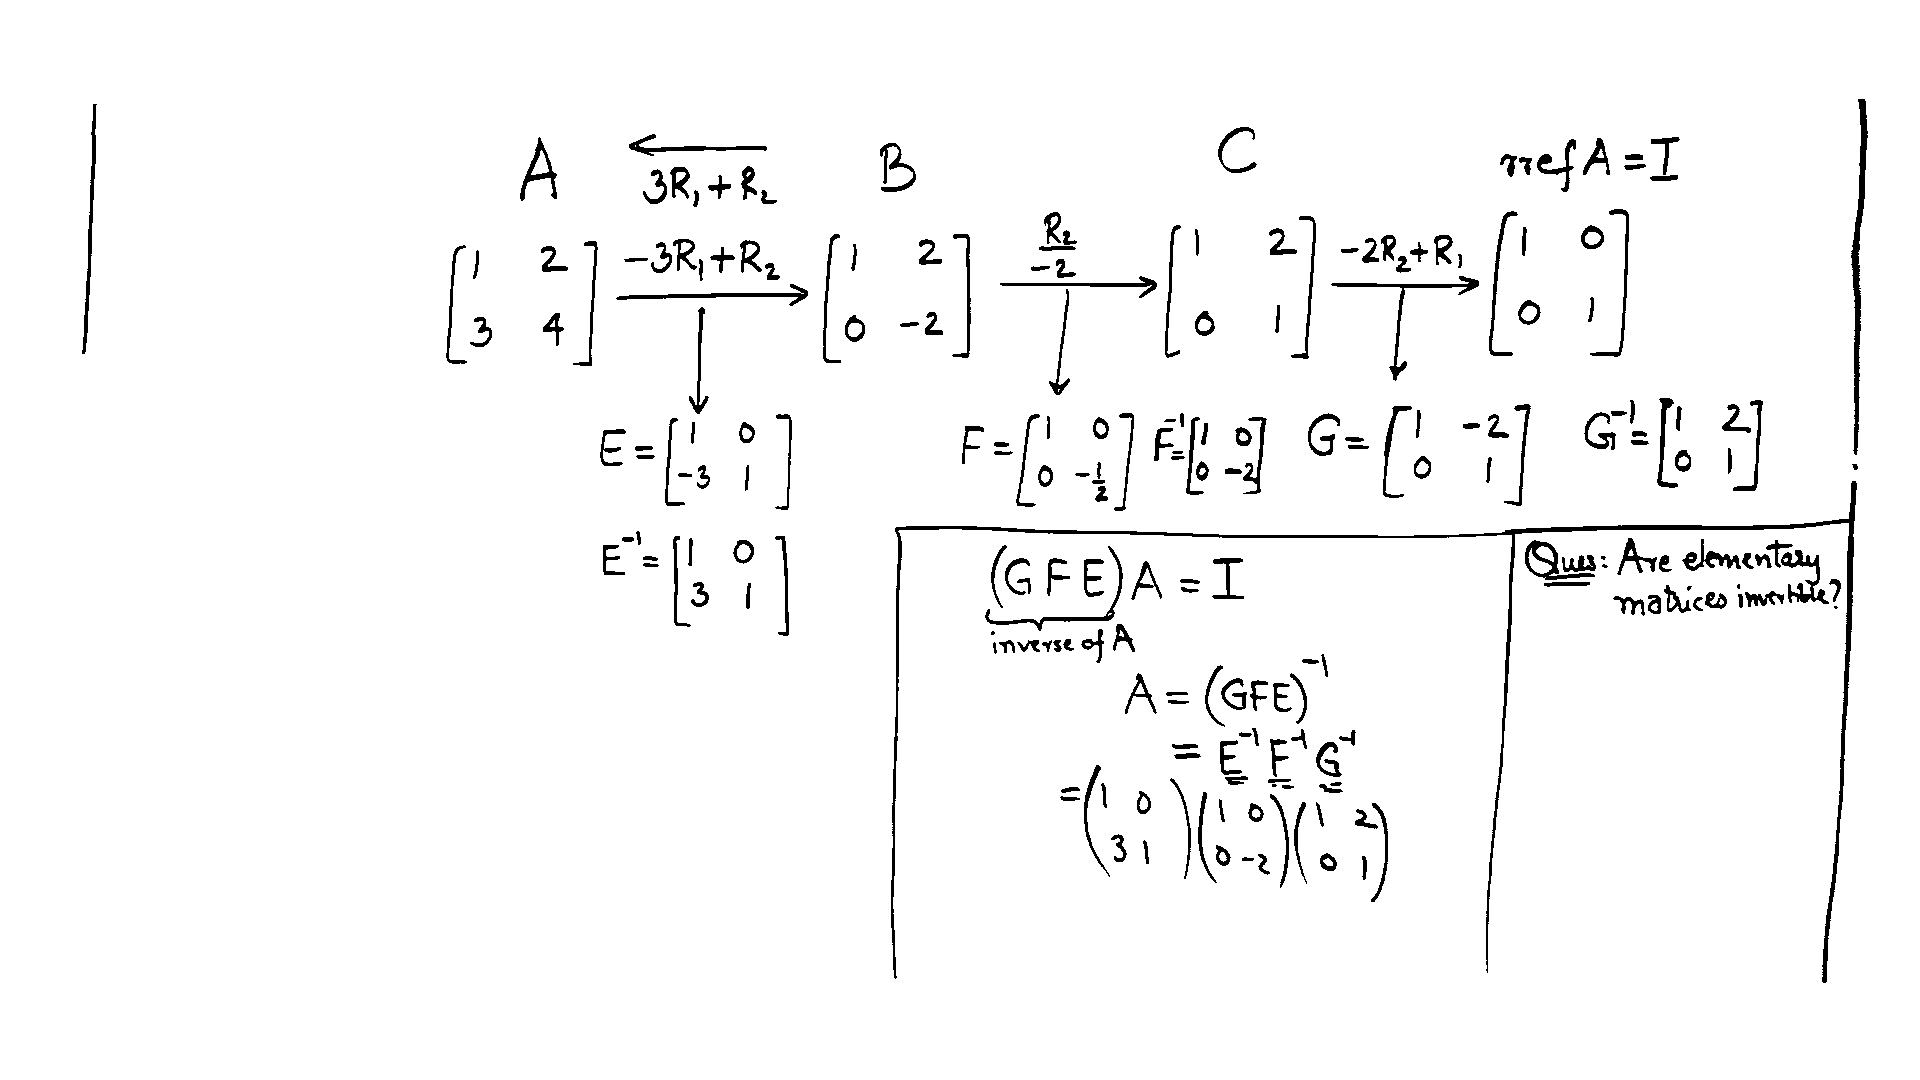 A ← 3R₁ + R₂ B C rref A = I
[1 2; 3 4] −3R₁ + R₂ → [1 2; 0 −2] R₂/−2 → [1 2; 0 1] −2R₂ + R₁ → [1 0; 0 1]
E = [1 0; −3 1] F = [1 0; 0 −1/2] F⁻¹ = [1 0; 0 −2] G = [1 −2; 0 1] G⁻¹ = [1 2; 0 1]
E⁻¹ = [1 0; 3 1]
(G F E) A = I
inverse of A
A = (GFE)⁻¹
= E⁻¹ F⁻¹ G⁻¹
= (1 0; 3 1) (1 0; 0 −2) (1 2; 0 1)
Ques: Are elementary
matrices invertible?